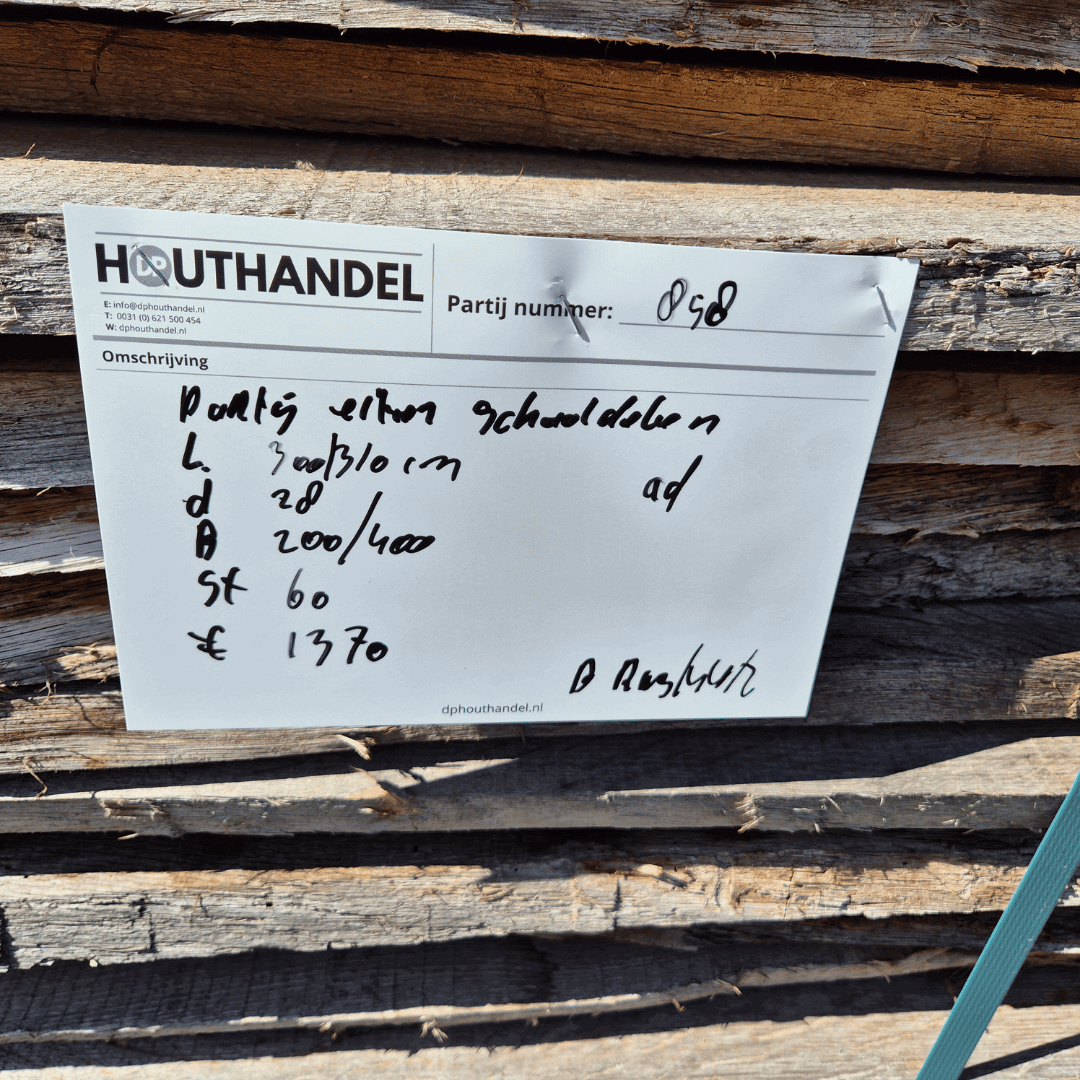 HOUTHANDEL
DP
E: info@dphouthandel.nl
T: 0031 (0) 621 500 454
W: dphouthandel.nl
Partij nummer: 898
Omschrijving
Partij eiken schaaldelen
L. 300/310 cm
ad
d 28
B 200/400
St 60
€ 1370
B
dphouthandel.nl